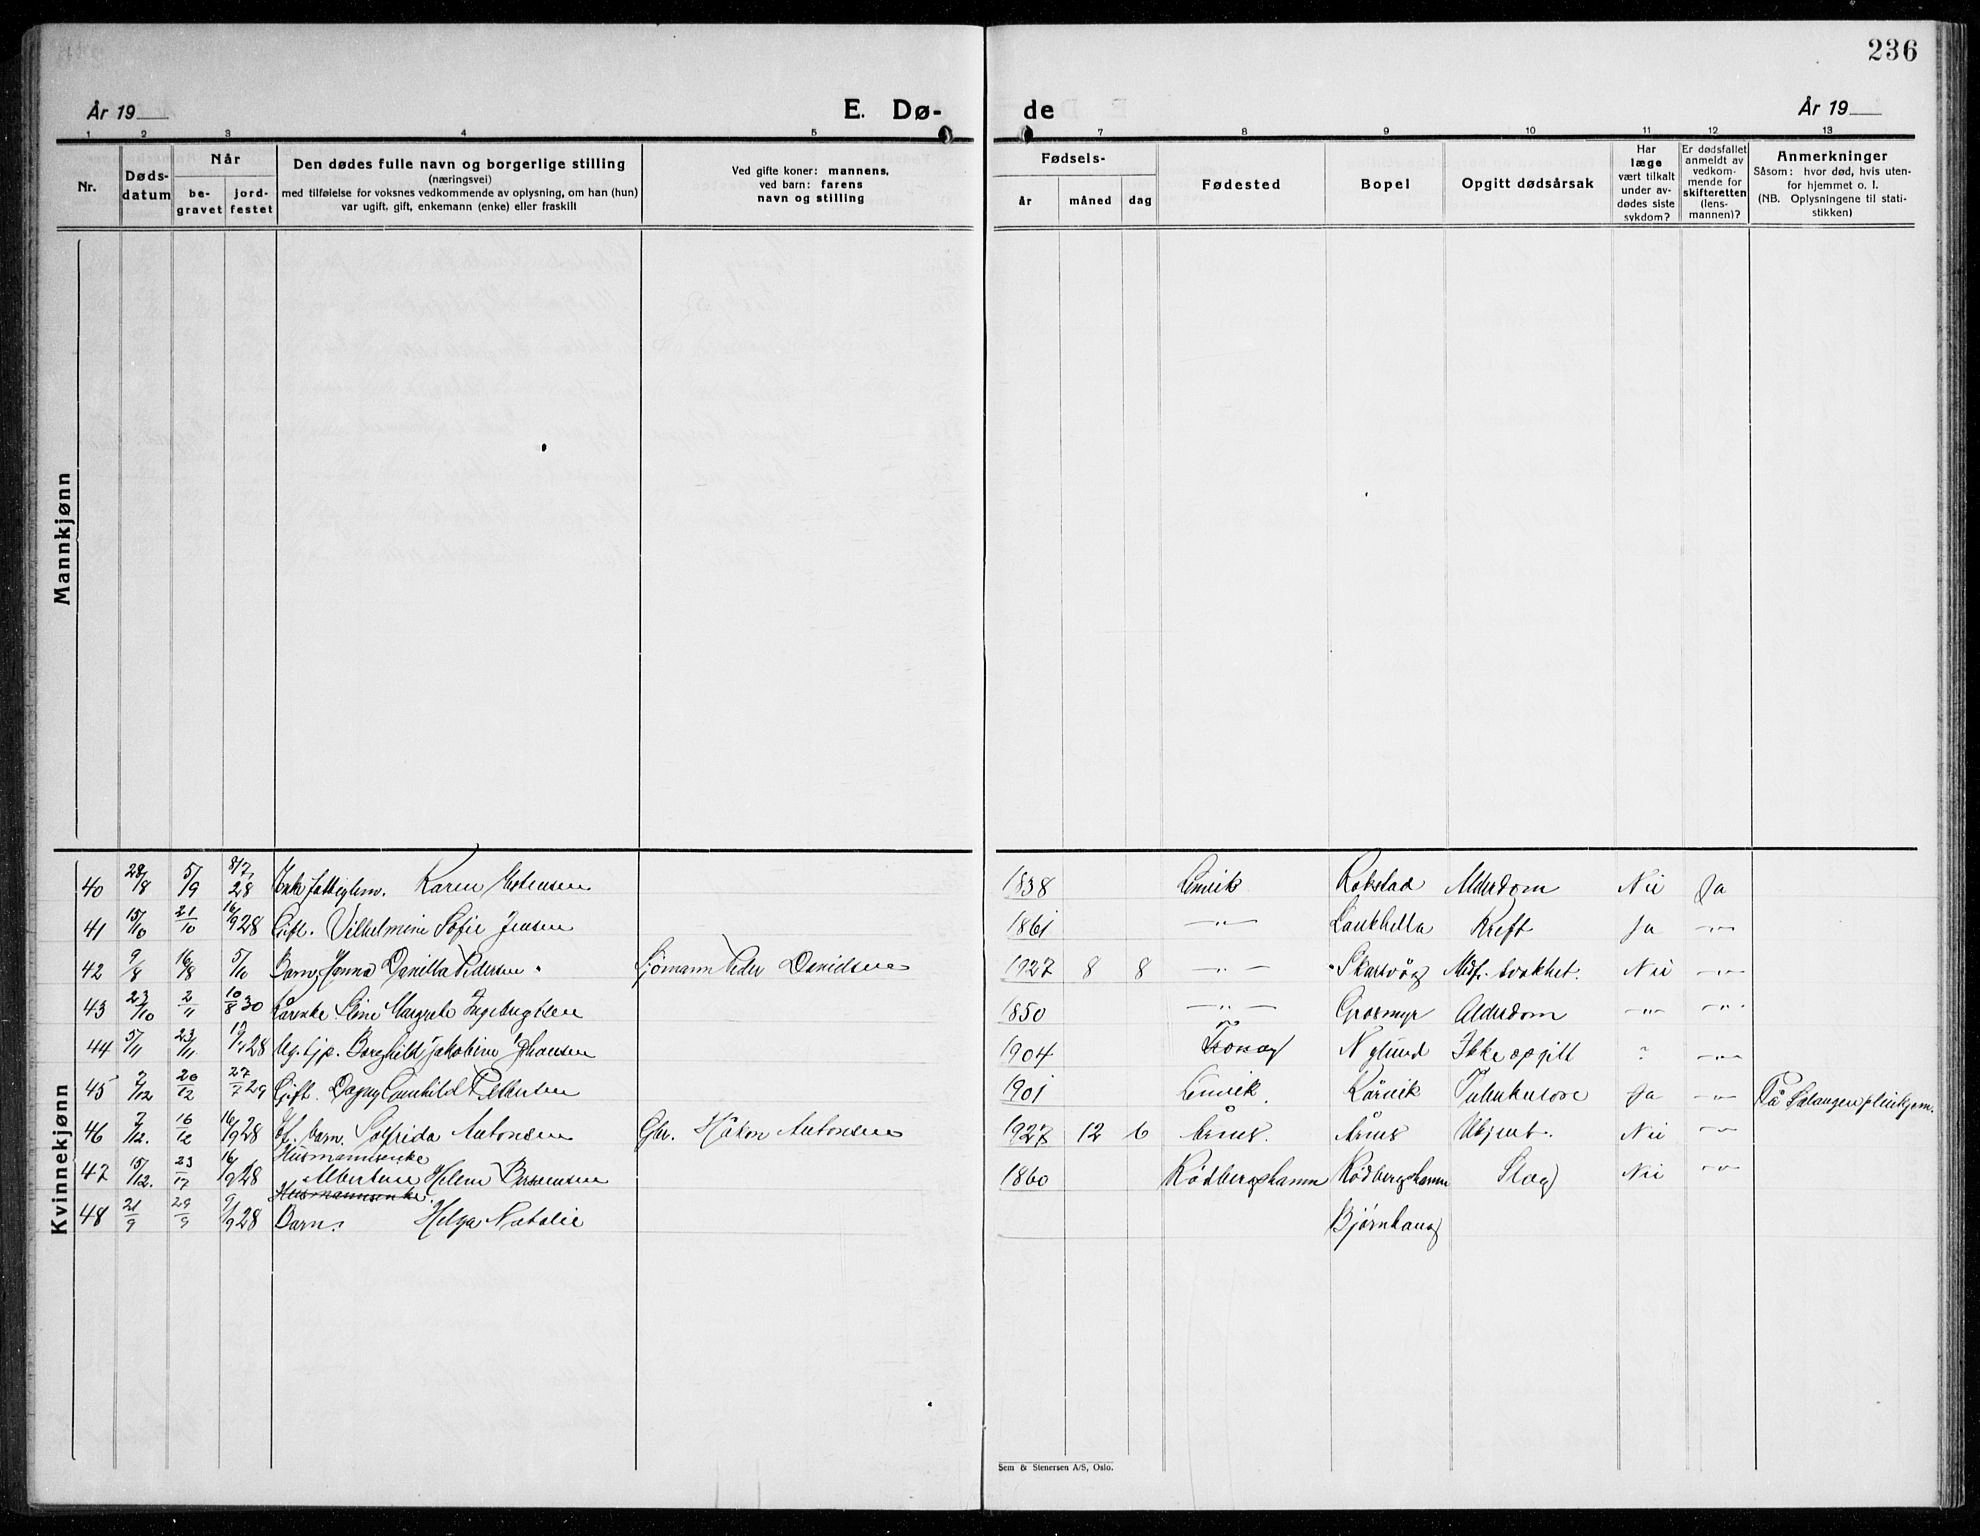 236
År 19
E. Dø-
de
År 19
1 2 3 4 5
7 8 9 10 11 12 13
Nr.
Døds-
datum
Når
be-
gravet
jord-
festet
Den dødes fulle navn og borgerlige stilling
(næringsvei)
med tilføielse for voksnes vedkommende av oplysning, om han (hun)
var ugift, gift, enkemann (enke) eller fraskilt
Ved gifte koner: mannens,
ved barn: farens
navn og stilling
Fødsels-
år måned dag
Fødested
Bopel
Opgitt dødsårsak
Har
læge
vært tilkalt
under av-
dødes siste
sykdom?
Er dødsfallet
anmeldt av
vedkom-
mende for
skifteretten
(lens-
mannen)?
Anmerkninger
Såsom: hvor død, hvis uten-
for hjemmet o. l.
(NB. Oplysningene til stati-
stikken)
Mannkjønn
Kvinnekjønn
40 28/8 5/9 Karen 1838 Lenvik Rokstad Alderdom Nei Ja
41 15/10 21/10 16/9 28 Gift. Vilhelmine Sofie Jensen 1861 -"- Laukhella Kreft Ja -"-
42 9/8 16/8 5/10 Barn, Hanna Danilla Pedersen Sjømann Peder Danielsen 1927 8 8 -"- Skarsvåg Medf. svakhet. Nei -"-
43 23/10 2/11 10/8 30 Kårenke Margrete Ingebrigtsen 1850 -"- Grasmyr Alderdom -"- -"-
44 5/11 23/11 28 Ug. tjp. Borghild Jakobine Johansen 1904 Nylund Ikke opgitt ? -"-
45 7/12 20/12 27/7 29 Gift. Dagny Gunhild Pettersen 1901 Lenvik. Kårvik Tuberkulose Ja -"- På Salangen pleiehjem.
46 7/12. 16/12 16/9 28 barn. Solfrida Antonsen Gbr. Håkon Antonsen 1927 12 6 Årnes. Årnes Ukjent. Nei -"-
Husmannsenke
47 15/12. 23/12 16/9 28 Albertine Helene 1860 Rødbergshamn Rødbergshamn Slag Nei -"-
Husmannsenke.
48 21/9 29/9 9/9 28 Barn. Helga Natalie Bjørnhaug
Sem & Stenersen A/S, Oslo.